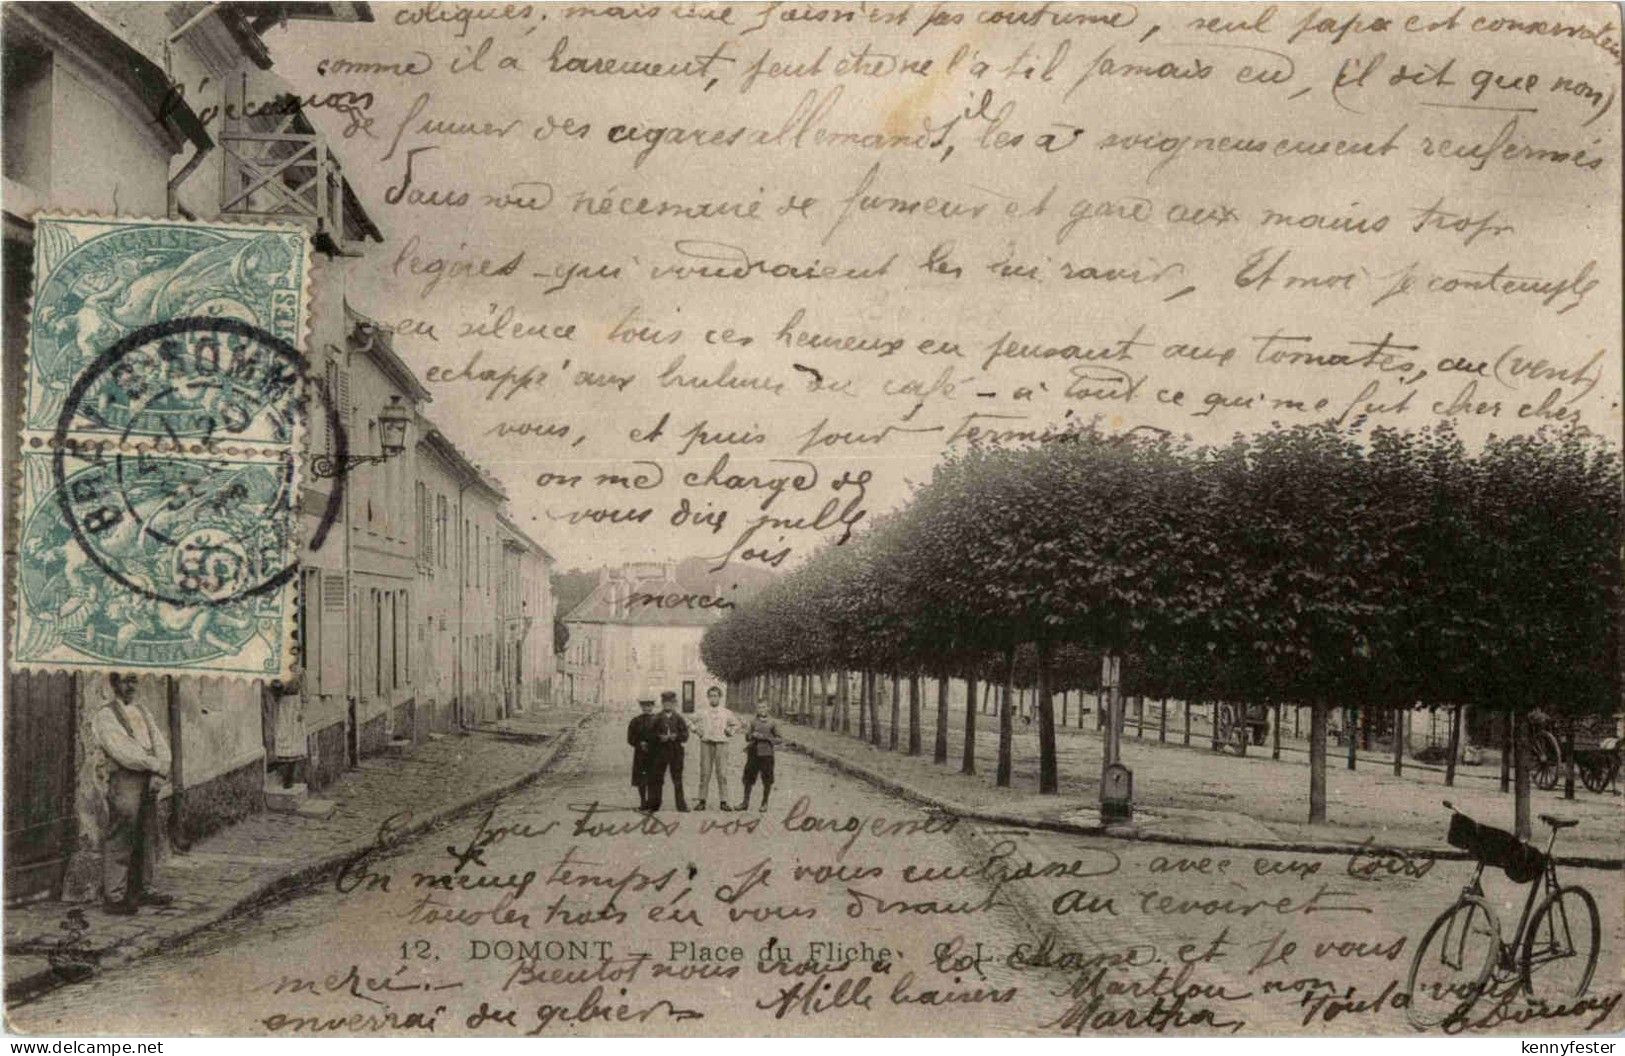 coliques, mais une fois n'est pas coutume, seul papa est conservateur
comme il a rarement, peut être ne l'a t il jamais eu, (il dit que non)
l'occasion
de fumer des cigares allemands, il les a soigneusement renfermés
dans son nécessaire de fumeur et gare aux mains trop
legères qui voudraient les lui ravir, Et moi je contemple
en silence tous ces heureux en pensant aux tomates, au (vent)
echappé aux brulures du café - à tout ce qui me fut cher chez
vous, et puis pour terminer
on me charge de
vous dire mille
fois
merci
pour toutes vos largesses.
En même temps, je vous embrasse avec eux tous
tous les trois en vous disant au revoir et
12. DOMONT - Place du Fliche. C. L. C.
merci. - Bientôt nous irons à la chasse et je vous
enverrai du gibier. Mille baisers Marthou non
Martha, Tout à vous
BREVAL-
SOMME
20
05
RÉPUBLIQUE FRANÇAISE
POSTES
5
5
kennyfester